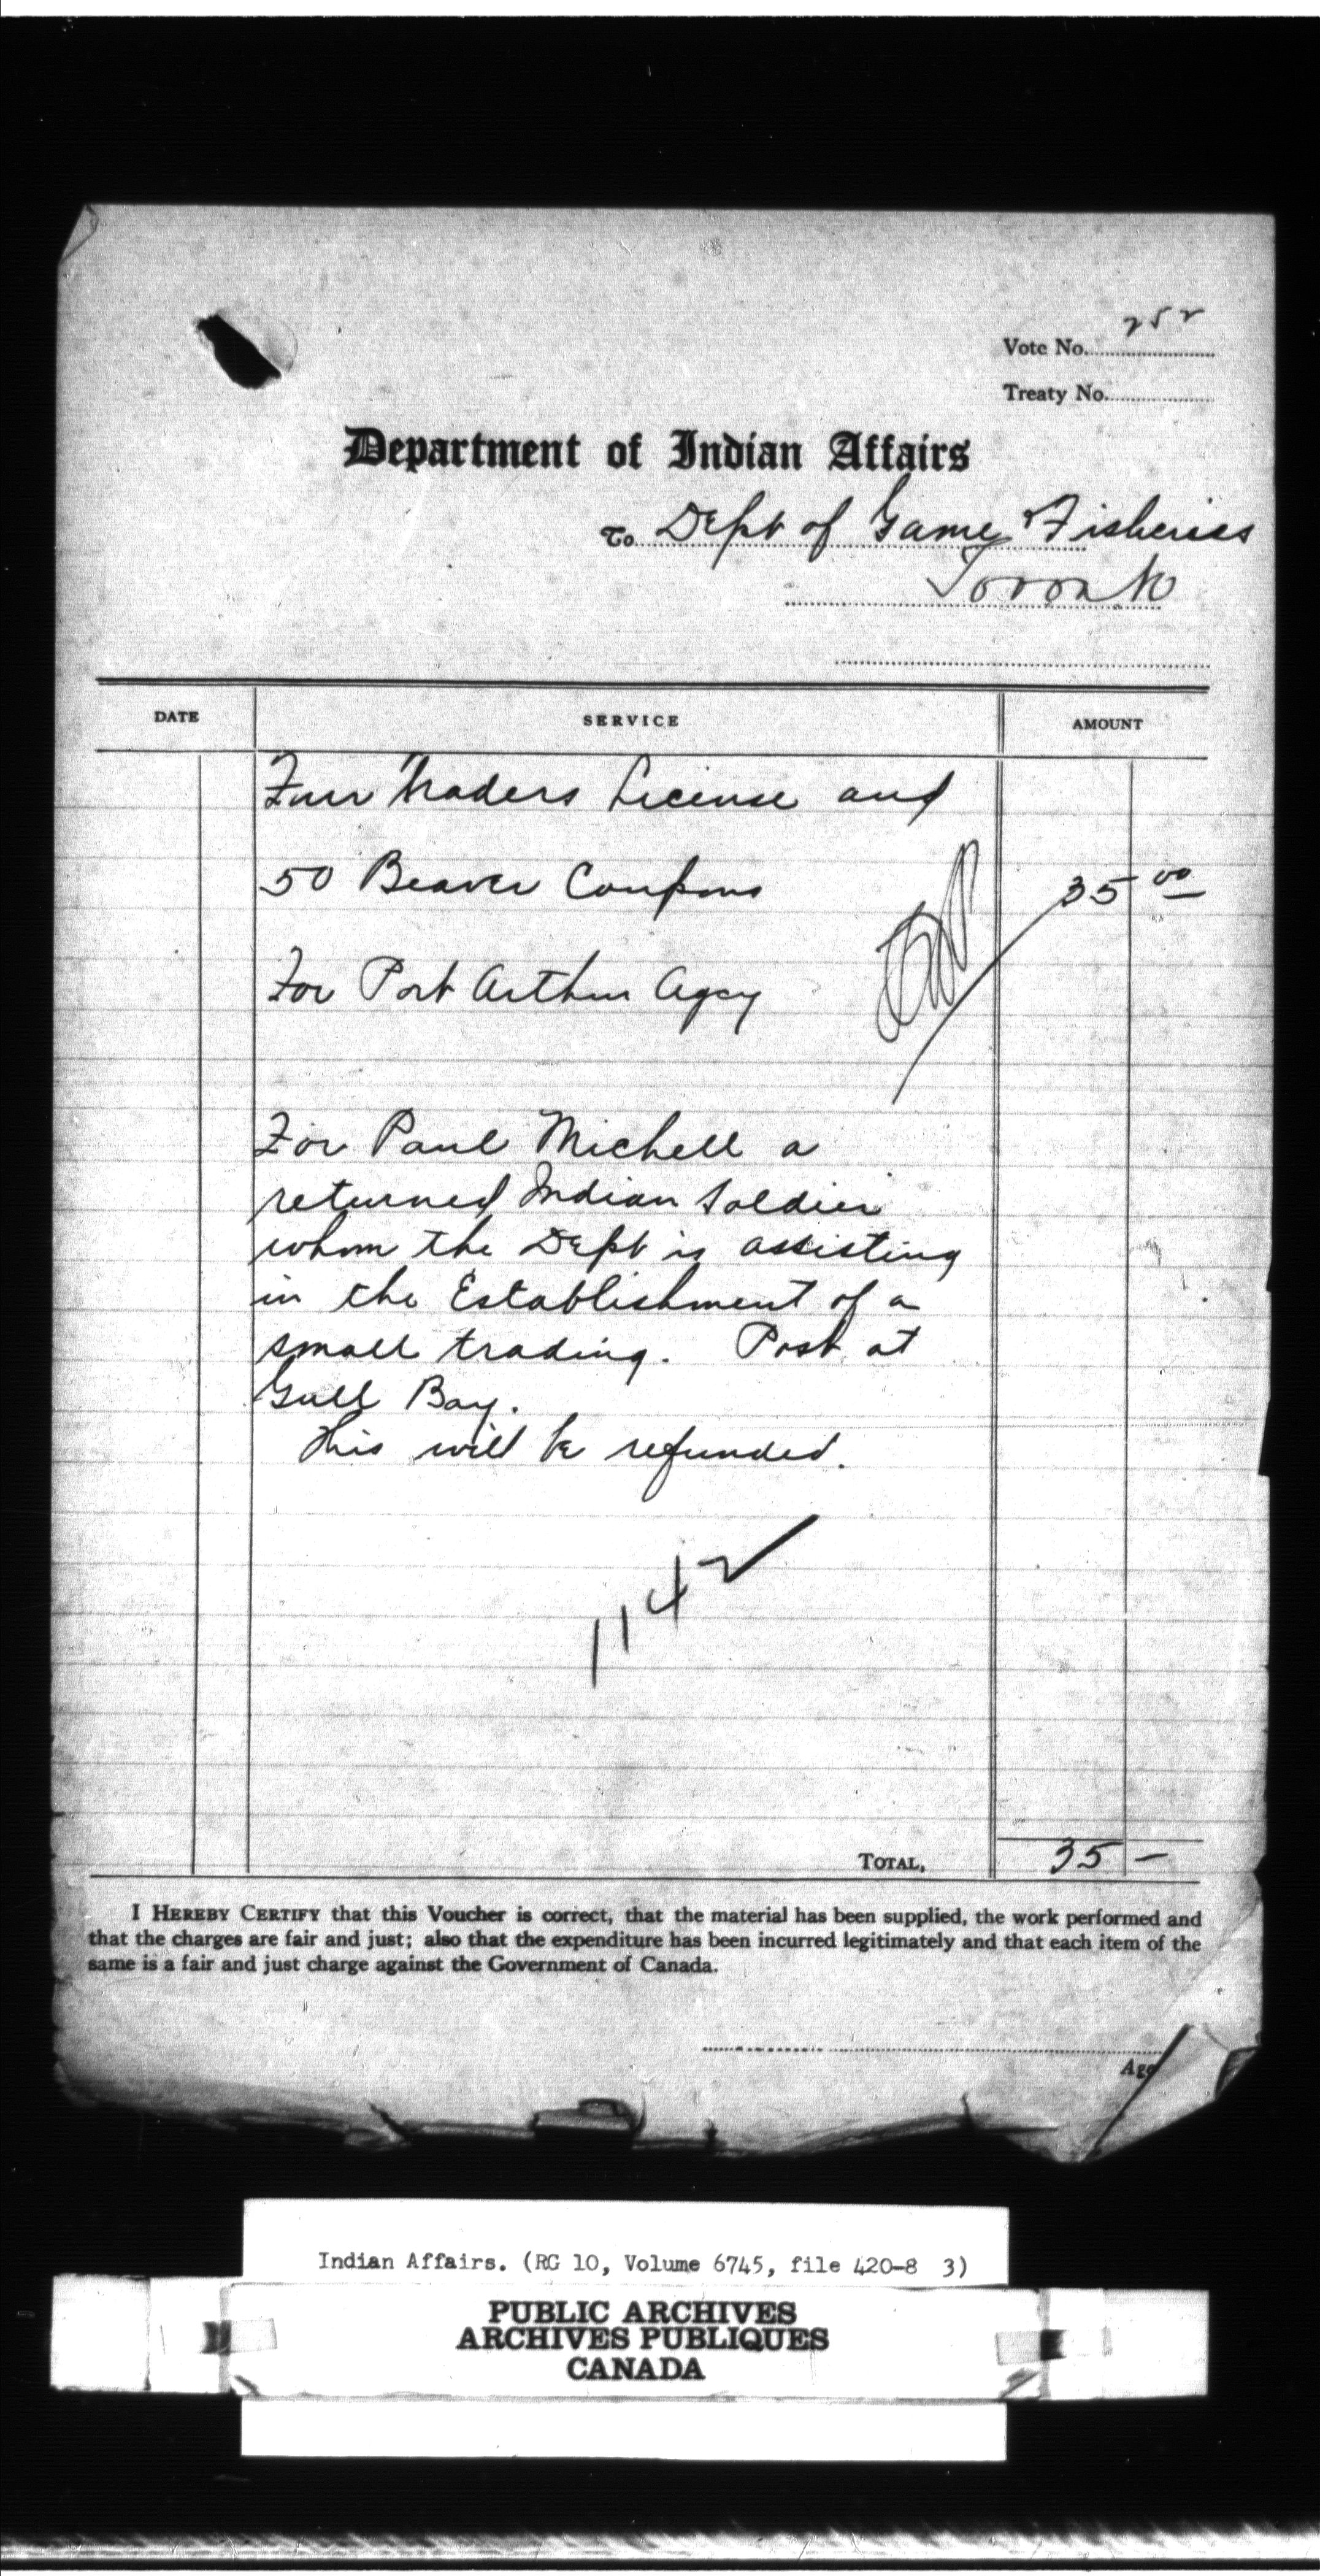 Vote No. 252
Treaty No.
Department of Indian Affairs
To Dept of Game & Fisheries
Toronto
DATE SERVICE AMOUNT
Furr Traders License and
50 Beaver Coupons 35 00
For Port Arthur Agcy
For Paul Michell a
returned Indian Soldier
whom the Dept is assisting
in the Establishment of a
small trading. Post at
Gull Bay.
This will be refunded.
1142
TOTAL, 35 —
I HEREBY CERTIFY that this Voucher is correct, that the material has been supplied, the work performed and
that the charges are fair and just; also that the expenditure has been incurred legitimately and that each item of the
same is a fair and just charge against the Government of Canada.
Age
Indian Affairs. (RG 10, Volume 6745, file 420-8 3)
PUBLIC ARCHIVES
ARCHIVES PUBLIQUES
CANADA